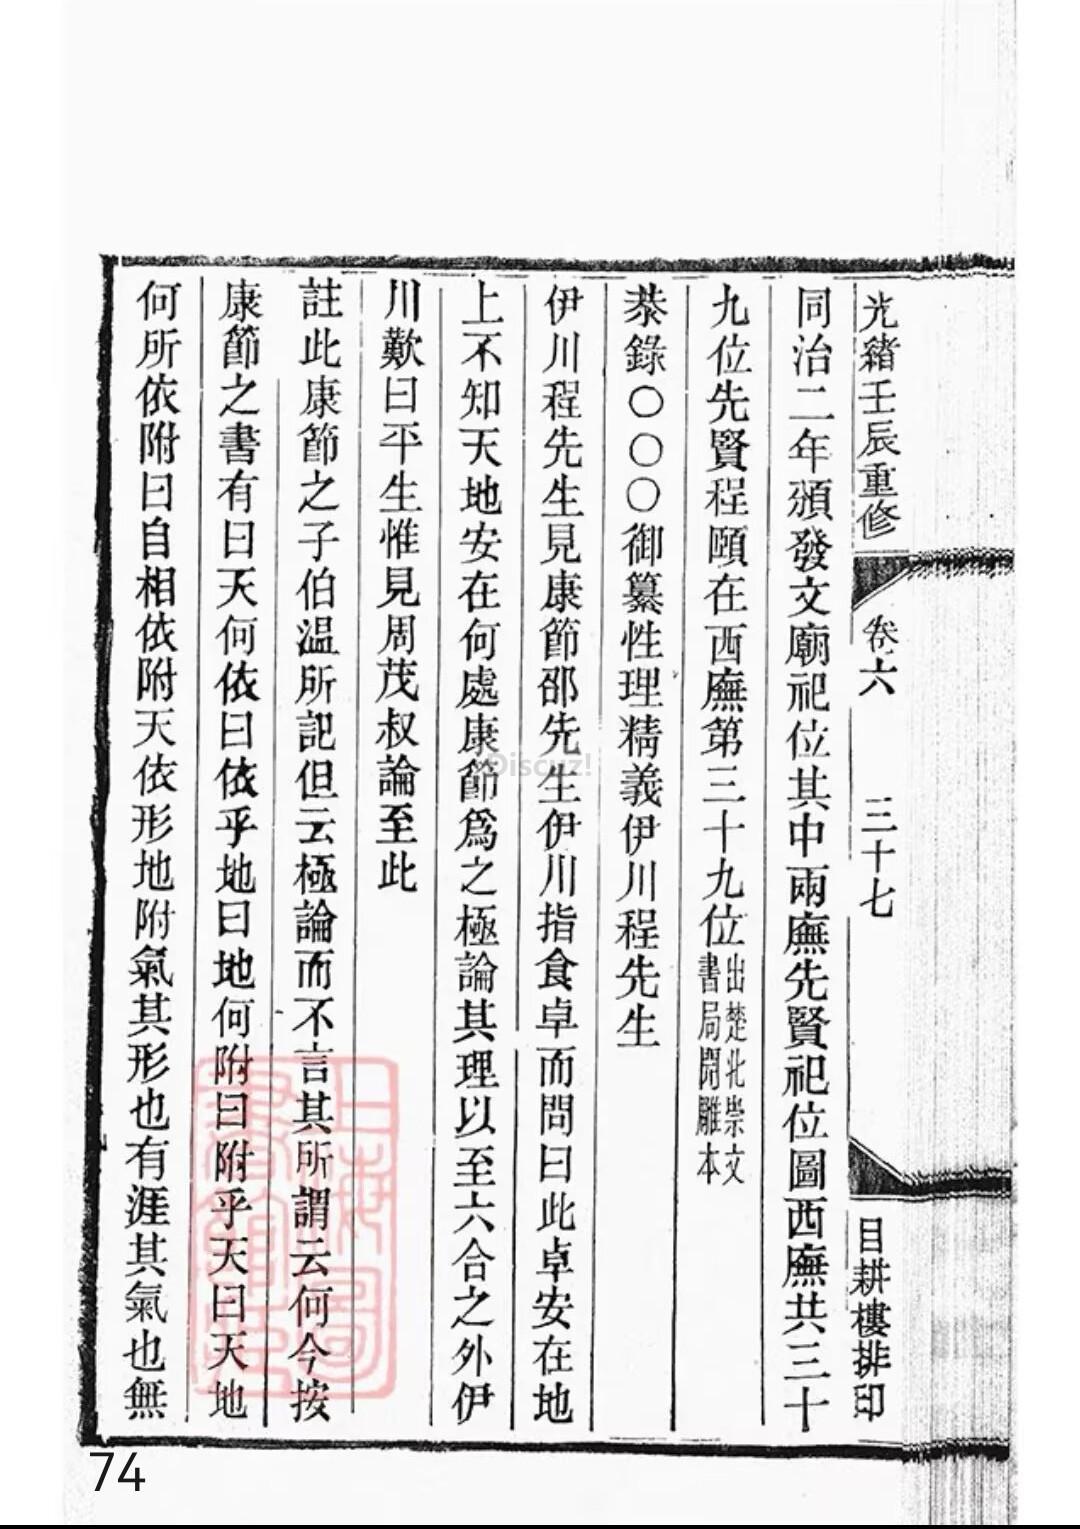 光緒壬辰重修
卷六
三十七
目耕樓排印
同治二年頒發文廟祀位其中兩廡先賢祀位圖西廡共三十
九位先賢程頤在西廡第三十九位出楚北崇文
書局開雕本
恭錄〇〇〇御纂性理精義伊川程先生
伊川程先生見康節邵先生伊川指食卓而問曰此卓安在地
上不知天地安在何處康節爲之極論其理以至六合之外伊
川歎曰平生惟見周茂叔論至此
註此康節之子伯溫所記但云極論而不言其所謂云何今按
康節之書有曰天何依曰依乎地曰地何附曰附乎天曰天地
何所依附曰自相依附天依形地附氣其形也有涯其氣也無
上海圖書館藏
Discuz!
74